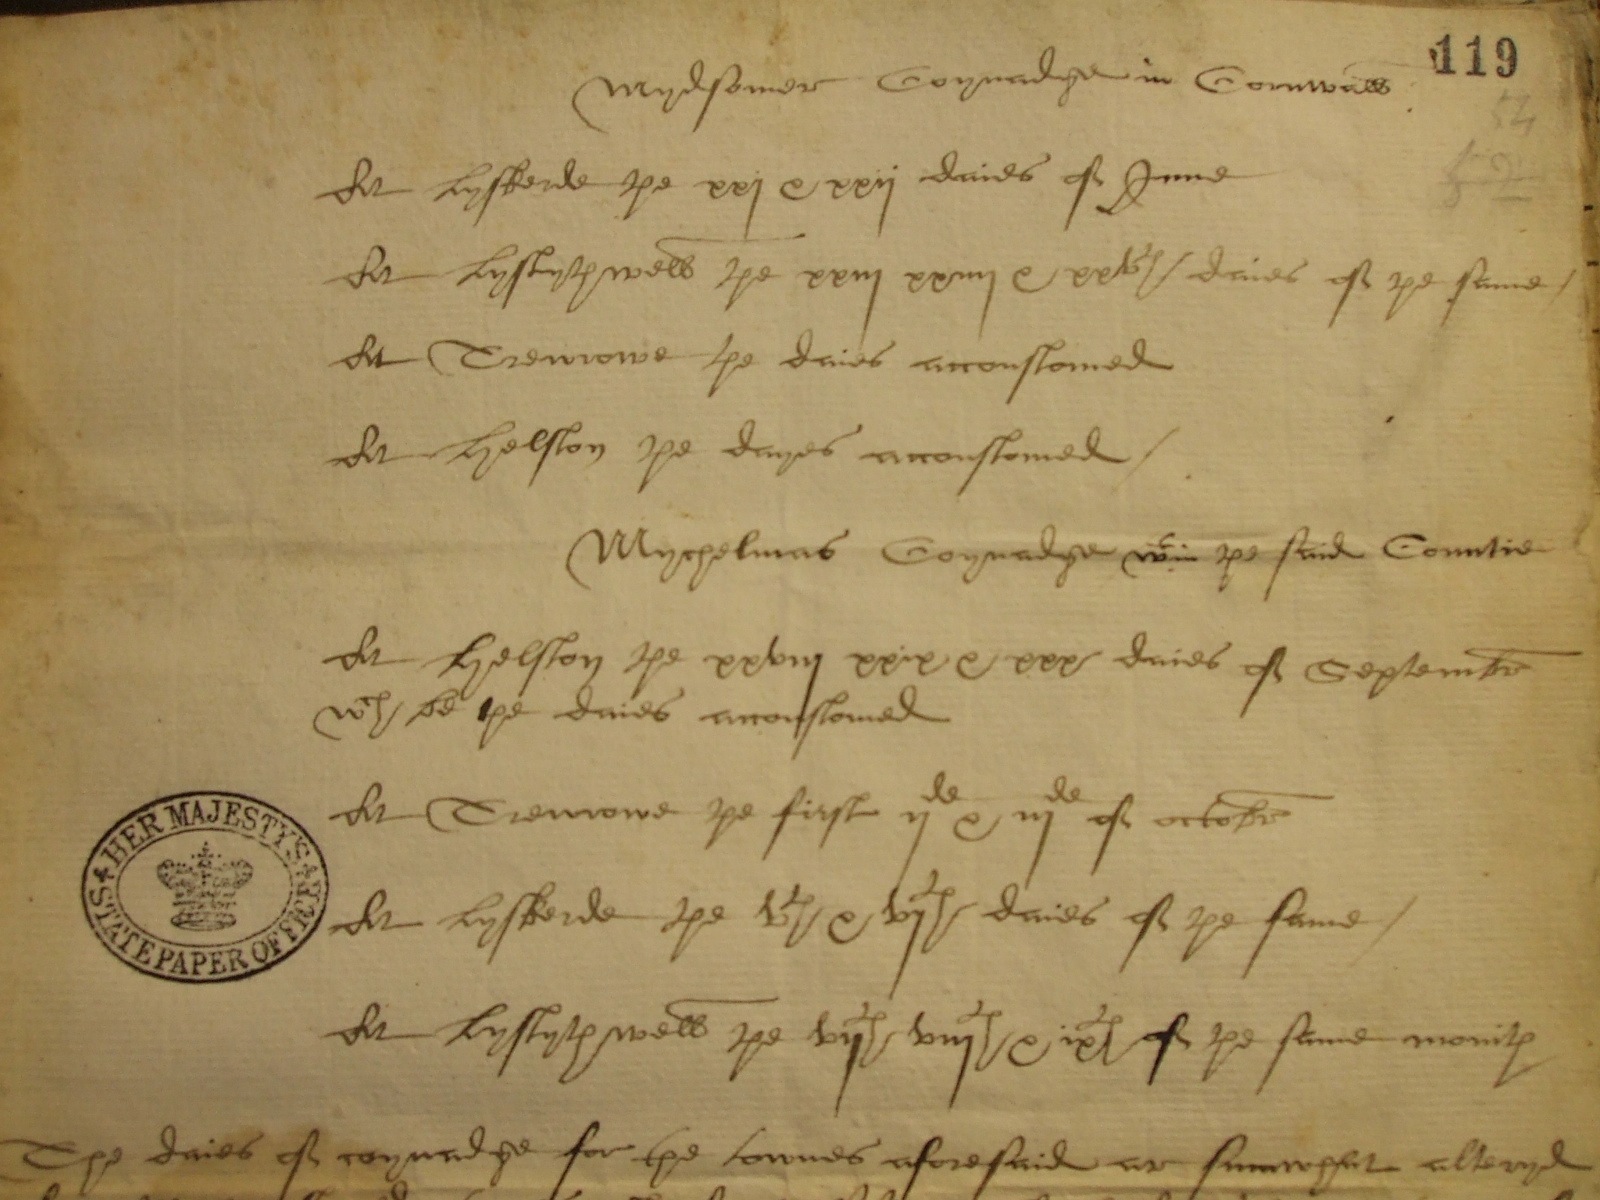 119
Mydsomer Coynadge in Cornwall
At Lyskerde the xxj & xxij daies of June
At Lystythwell the xxiij xxiiij & xxvth daies of the same /
At Trewrowe the daies accoustomed
At Helston the dayes accoustomed /
Mychelmas Coynadge wtin the said Countie
At Helston the xxviij xxix & xxx daies of Septembre
wch be the daies accoustomed
At Trewrowe the first ijde & iijde of octobre
At Lyskerde the vth & vjth daies of the same /
HER MAJESTY'S
STATE PAPER OFFICE
At Lystythwell the vijth viijth & ixth of the same monith
The daies of coynadge for the townes aforesaid ar sumwhat alteryd